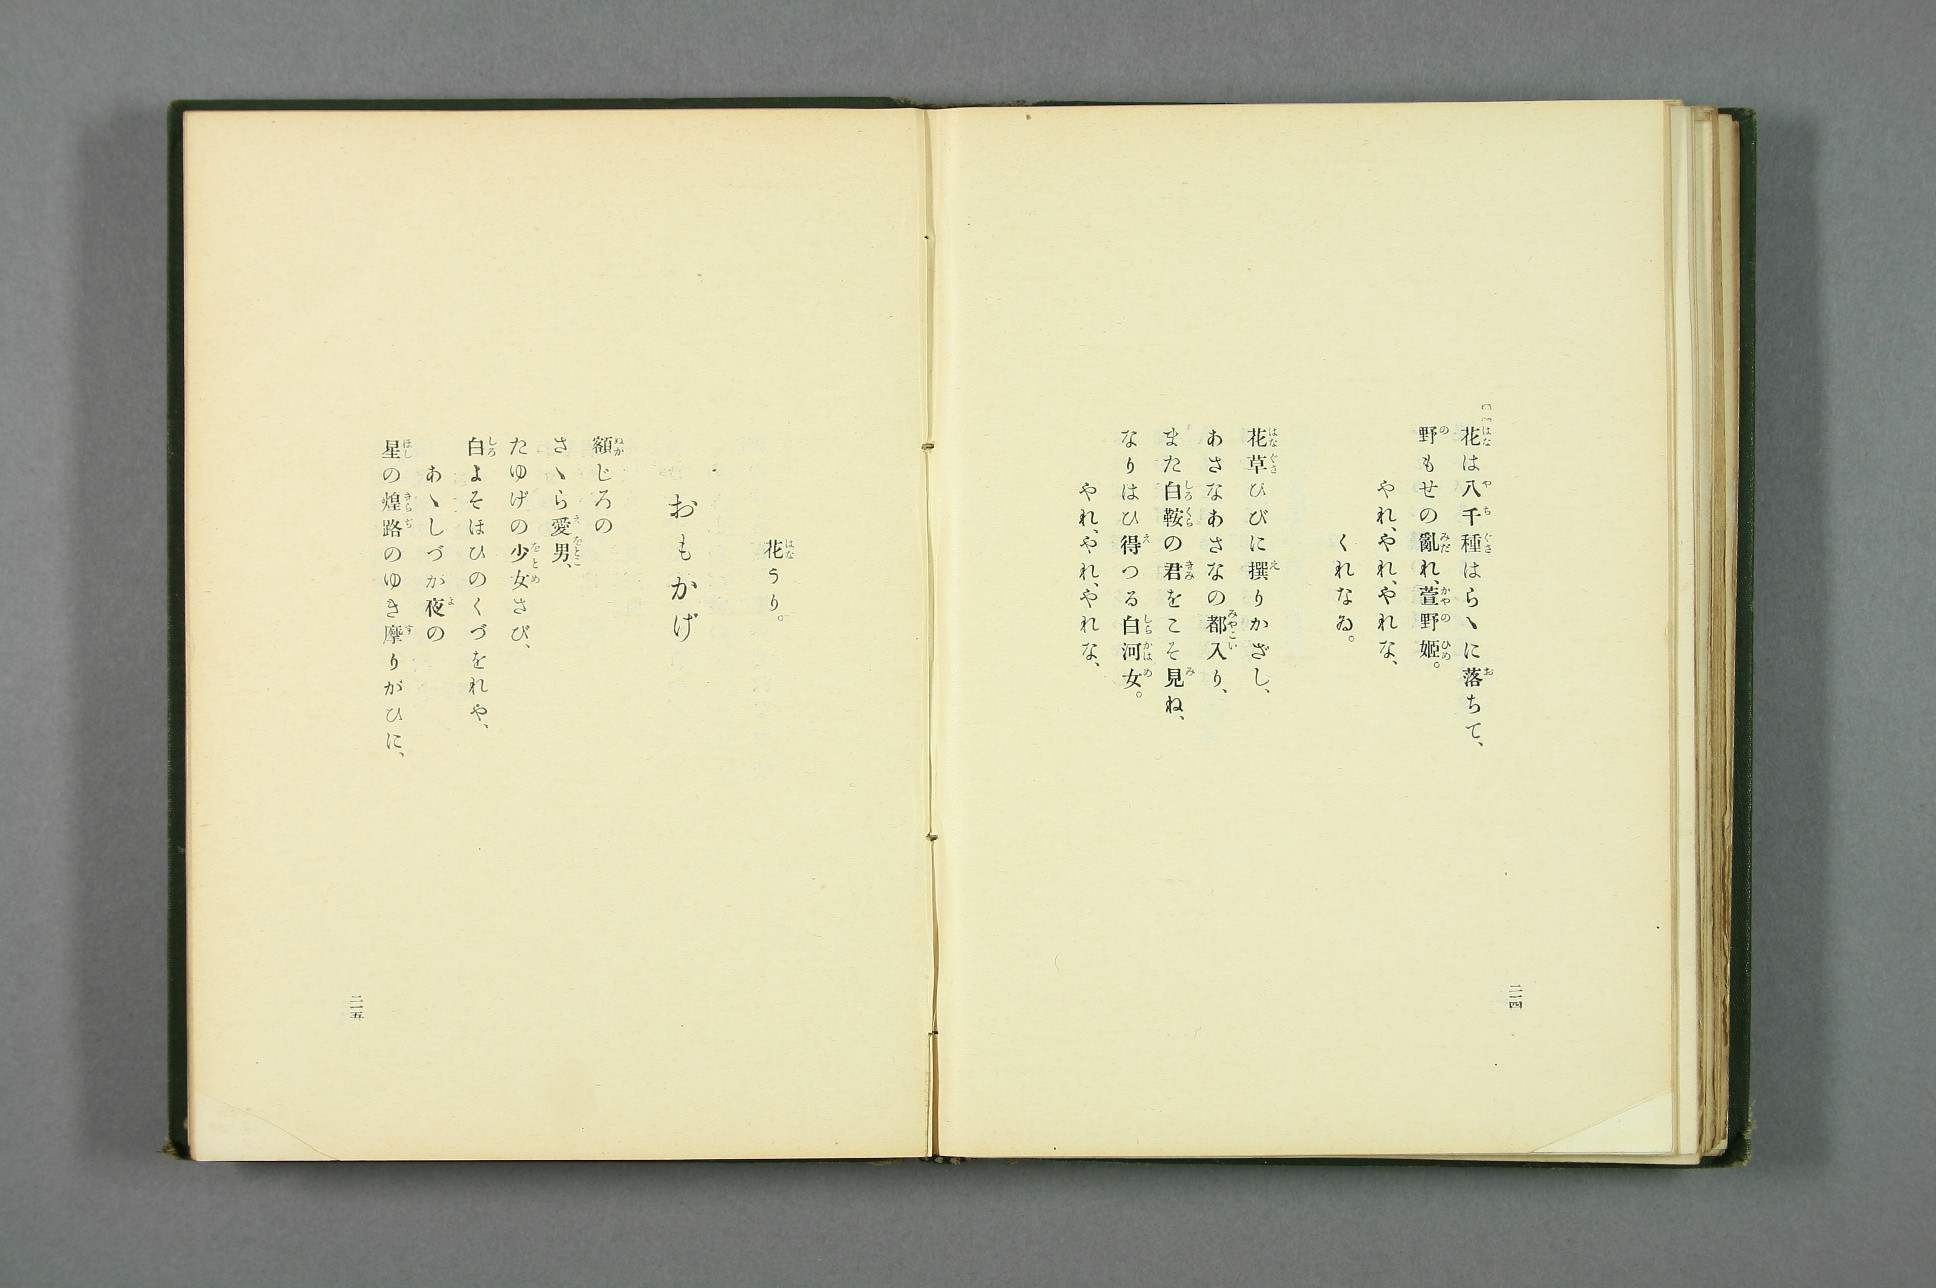 花は八千種はらゝに落ちて、
野もせの亂れ、萱野姬。
やれ、やれ、やれな、
くれなゐ。
花草ひびに撰りかざし、
あさなあさなの都入り、
また白鞍の君をこそ見ね、
なりはひ得つる白河女。
やれ、やれ、やれな、
二一四
花うり。
おもかげ
額じろの
さゝら愛男、
たゆげの少女さび、
白よそほひのくづをれや、
あゝしづが夜の
星の煌路のゆき摩りがひに、
二一五